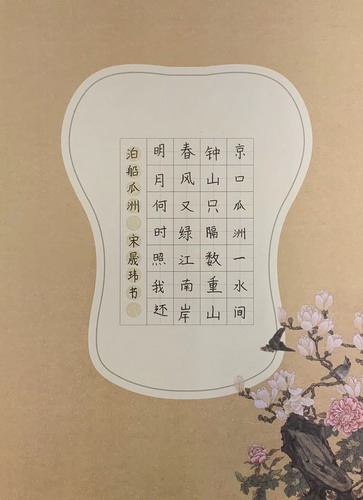 京口瓜洲一水间
钟山只隔数重山
春风又绿江南岸
明月何时照我还
泊船瓜洲 宋晟玮书